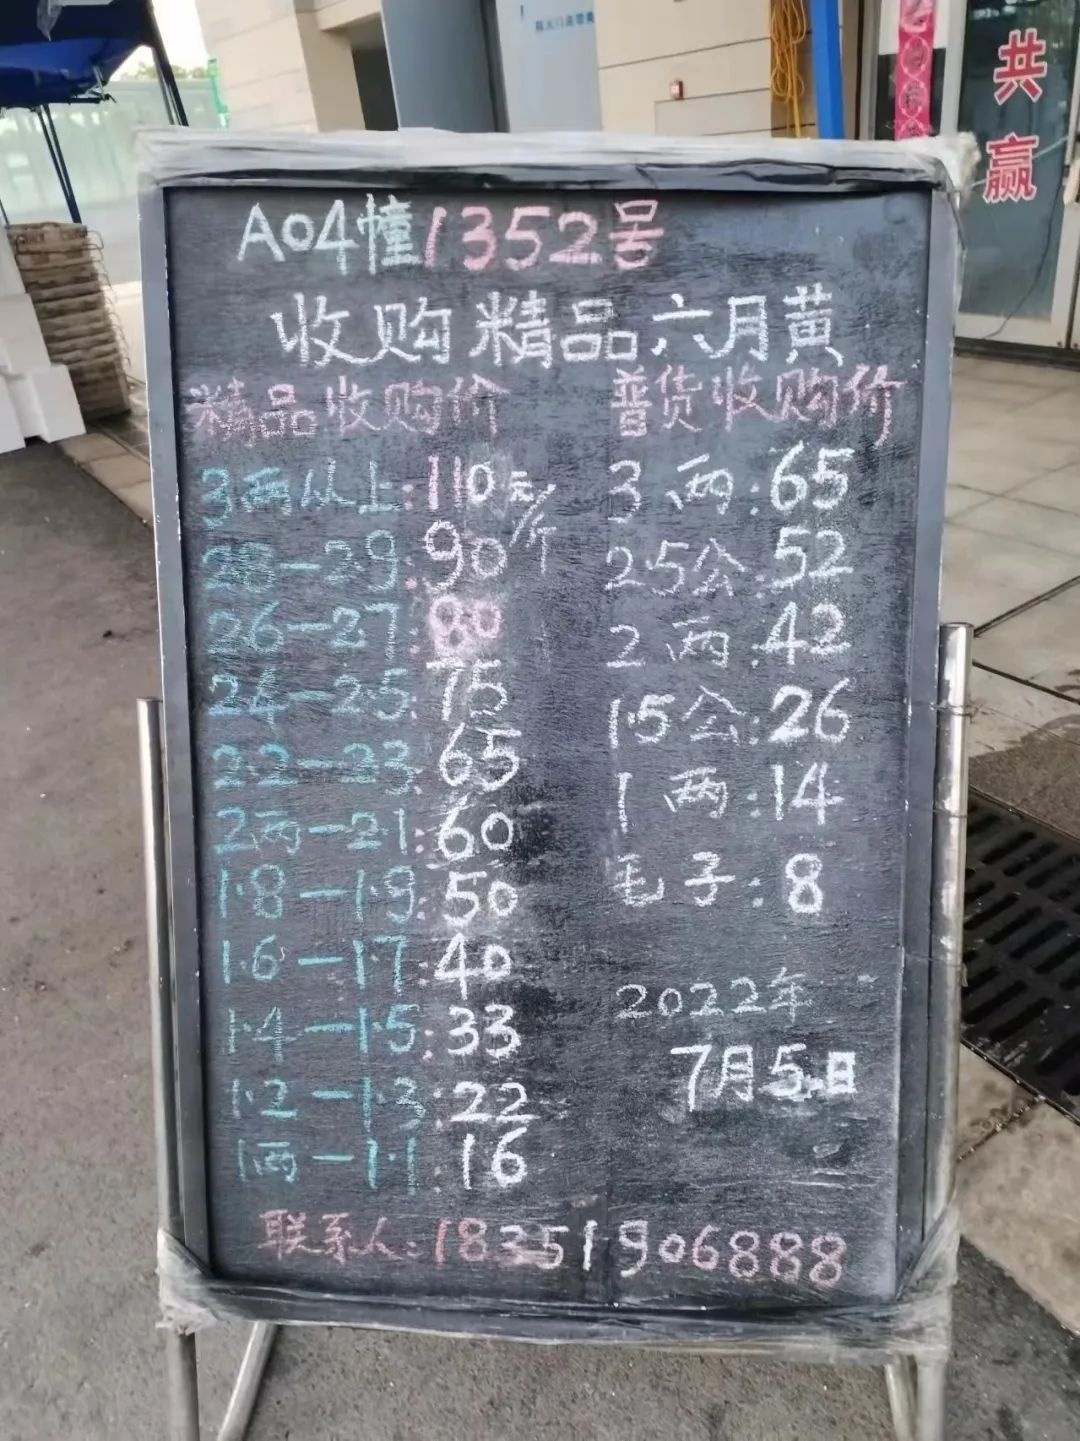 共
赢
A04幢1352号
收购精品六月黄
精品收购价
3两以上:110元/斤
28-29:90
26-27:80
24-2.5:75
2.2-23:65
2两-21:60
1.8-1.9:50
1.6-1.7:40
1.4-1.5:33
1.2-1.3:22
1两-1.1:16
普货收购价
3两:65
2.5公:52
2两:42
1.5公:26
1两:14
毛子:8
2022年
7月5日
联系人:18351906888